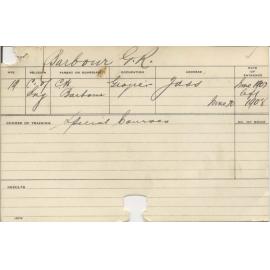 Barbour G.R.
AGE RELIGION PARENT OR GUARDIAN OCCUPATION ADDRESS DATE OF ENTRANCE
19 C. of Eng C.H. Barbour Grazier Yass June 1907
1908
COURSE OF TRAINING Special Courses
RESULTS